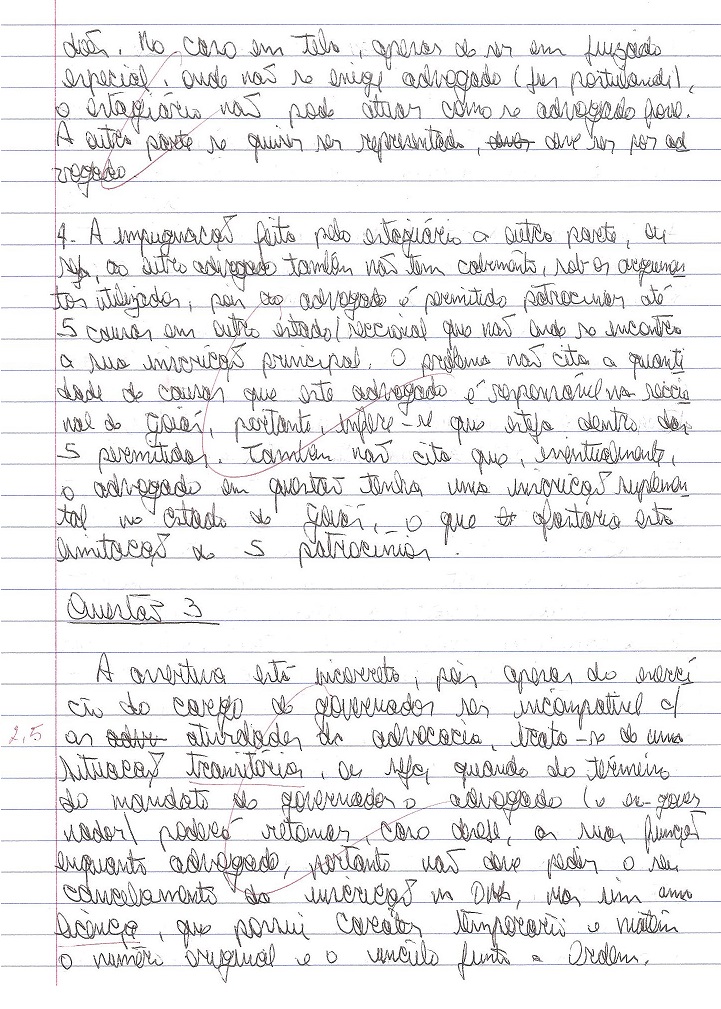 dãs. No caso em tela, apesar de ser em juizado
especial, onde não se exige advogado (jus postulandi),
o estagiário não pode atuar como se advogado fosse.
A outra parte se quiser ser representada, deve ser por ad
vogado
4- A impugnação feita pelo estagiário a outra parte, ou
seja, ao outro advogado também não tem cabimento, sob os argumen
tos utilizados, pois ao advogado é permitido patrocinar até
5 causas em outro estado/seccional que não onde se encontra
a sua inscrição principal. O problema não cita a quanti
dade de causas que este advogado é responsável na seccio
nal de Goiás, portanto, infere-se que esteja dentro das
5 permitidas. Também não cita que, eventualmente,
o advogado em questão tenha uma inscrição suplemen
tal no Estado de Goiás, o que afastaria esta
limitação de 5 patrocínios.
Questão 3
A assertiva está incorreta, pois apesar do exercí
cio do cargo de governador ser incompatível c/
2,5 as atividades da advocacia, trata-se de uma
situação transitória, ou seja, quando do término
do mandato de governador o advogado (o ex-gover
nador) poderá retomar caso deseje, as suas funções
enquanto advogado, portanto não deve pedir o seu
cancelamento da inscrição na OAB, mas sim uma
licença, que possui caráter temporário e mantém
o número original e o vínculo junto a Ordem.